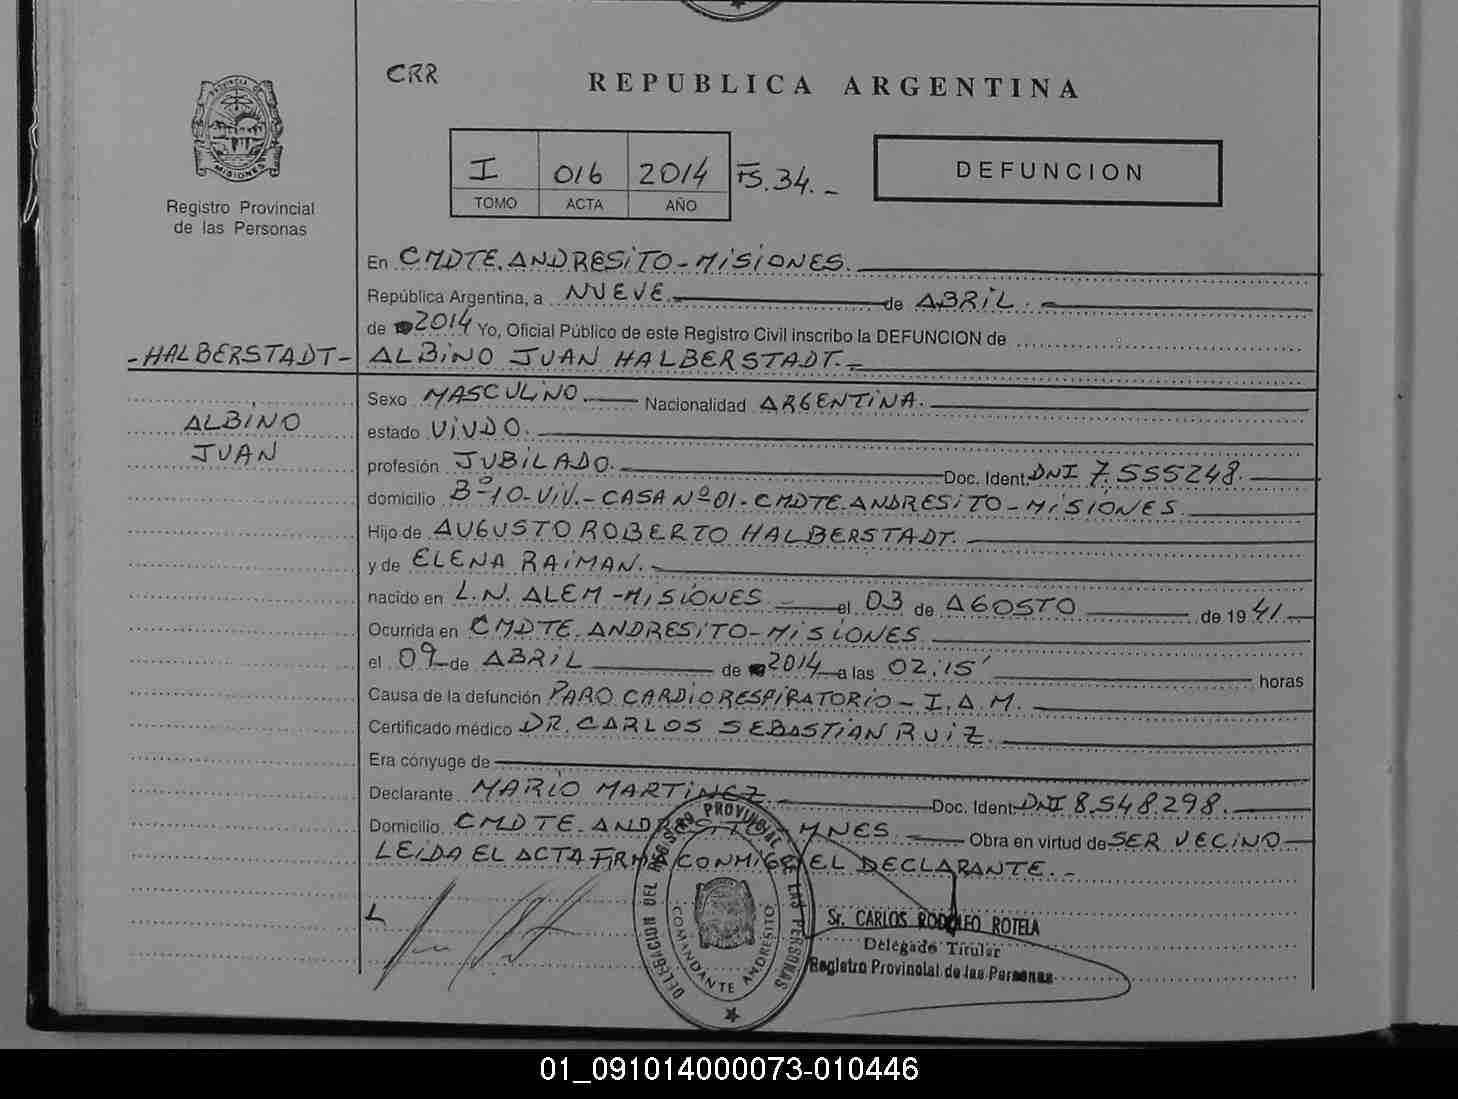 CRR
REPUBLICA ARGENTINA
PROVINCIA DE
MISIONES
Registro Provincial
de las Personas
I 016 2014 FS.34.-
TOMO ACTA AÑO
DEFUNCION
En CMDTE. ANDRESITO - MISIONES.
República Argentina, a NUEVE. de ABRIL.
de 2014 Yo, Oficial Público de este Registro Civil inscribo la DEFUNCION de
-HALBERSTADT- ALBINO JUAN HALBERSTADT.-
Sexo MASCULINO. Nacionalidad ARGENTINA.
ALBINO
JUAN
estado VIUDO.
profesión JUBILADO. Doc. Ident. DNI 7.555248.
domicilio Bº 10-VIV.- CASA Nº 01. CMDTE. ANDRESITO - MISIONES.
Hijo de AUGUSTO ROBERTO HALBERSTADT.
y de ELENA RAIMAN.
nacido en L.N. ALEM - MISIONES el 03 de AGOSTO de 1941.
Ocurrida en CMDTE. ANDRESITO - MISIONES.
el 09 de ABRIL de 2014 a las 02.15' horas
Causa de la defunción PARO CARDIORESPIRATORIO - I.A.M.
Certificado médico DR. CARLOS SEBASTIAN RUIZ.
Era cónyuge de
Declarante MARIO MARTINEZ Doc. Ident. DNI 8.548.298.
Domicilio CMDTE. ANDRESITO - MNES. Obra en virtud de SER VECINO
LEIDA EL ACTA FIRMA CONMIGO EL DECLARANTE.-
DELEGACION DEL REGISTRO PROVINCIAL DE LAS PERSONAS
COMANDANTE ANDRESITO
Sr. CARLOS RODOLFO ROTELA
Delegado Titular
Registro Provincial de las Personas
01_091014000073-010446